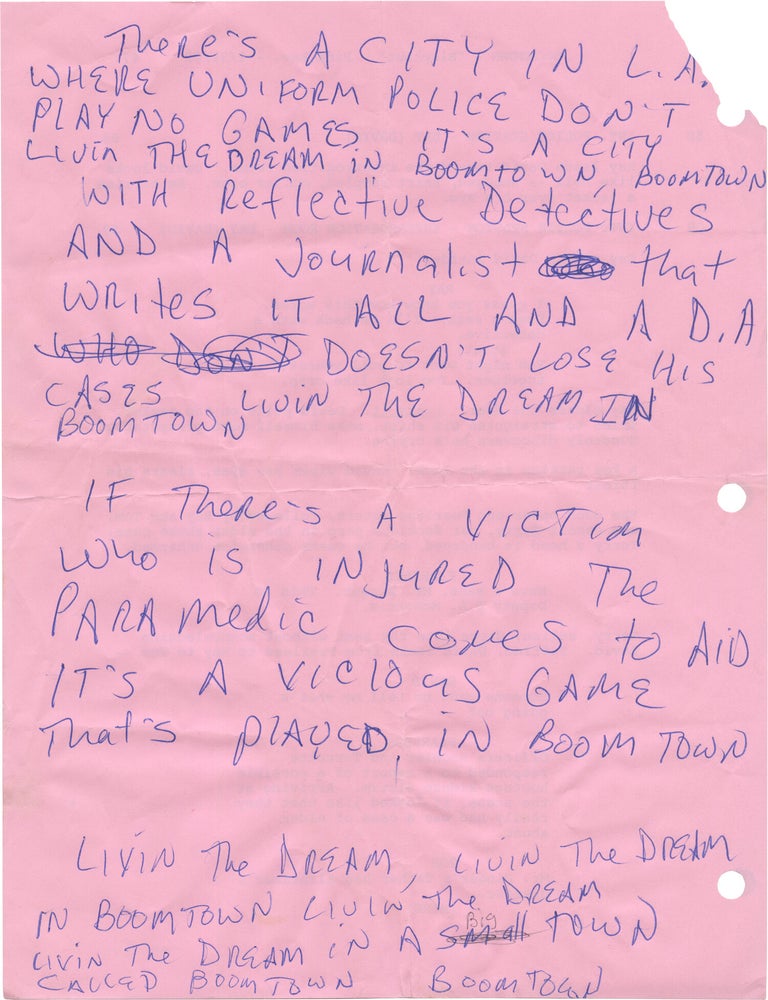 There's A CITY IN L.A.
WHERE UNIFORM POLICE DON'T
PLAY NO GAMES IT'S A CITY
LIVIN THE DREAM IN BOOMTOWN, BOOMTOWN
WITH Reflective Detectives
AND A Journalist that
WRITES IT ALL AND A D.A
WHO DON'T DOESN'T LOSE HIS
CASES LIVIN THE DREAM IN
BOOMTOWN
IF There's A VICTIM
WHO IS INJURED The
PARAMedic COMES to AID
IT'S A VICIOUS GAME
That's PLAYED, IN BOOMTOWN
LIVIN The DREAM, LIVIN The DREAM
IN BOOMTOWN LIVIN' The DREAM
LIVIN The DREAM IN A small Big TOWN
CALLED BOOMTOWN BOOMTOWN